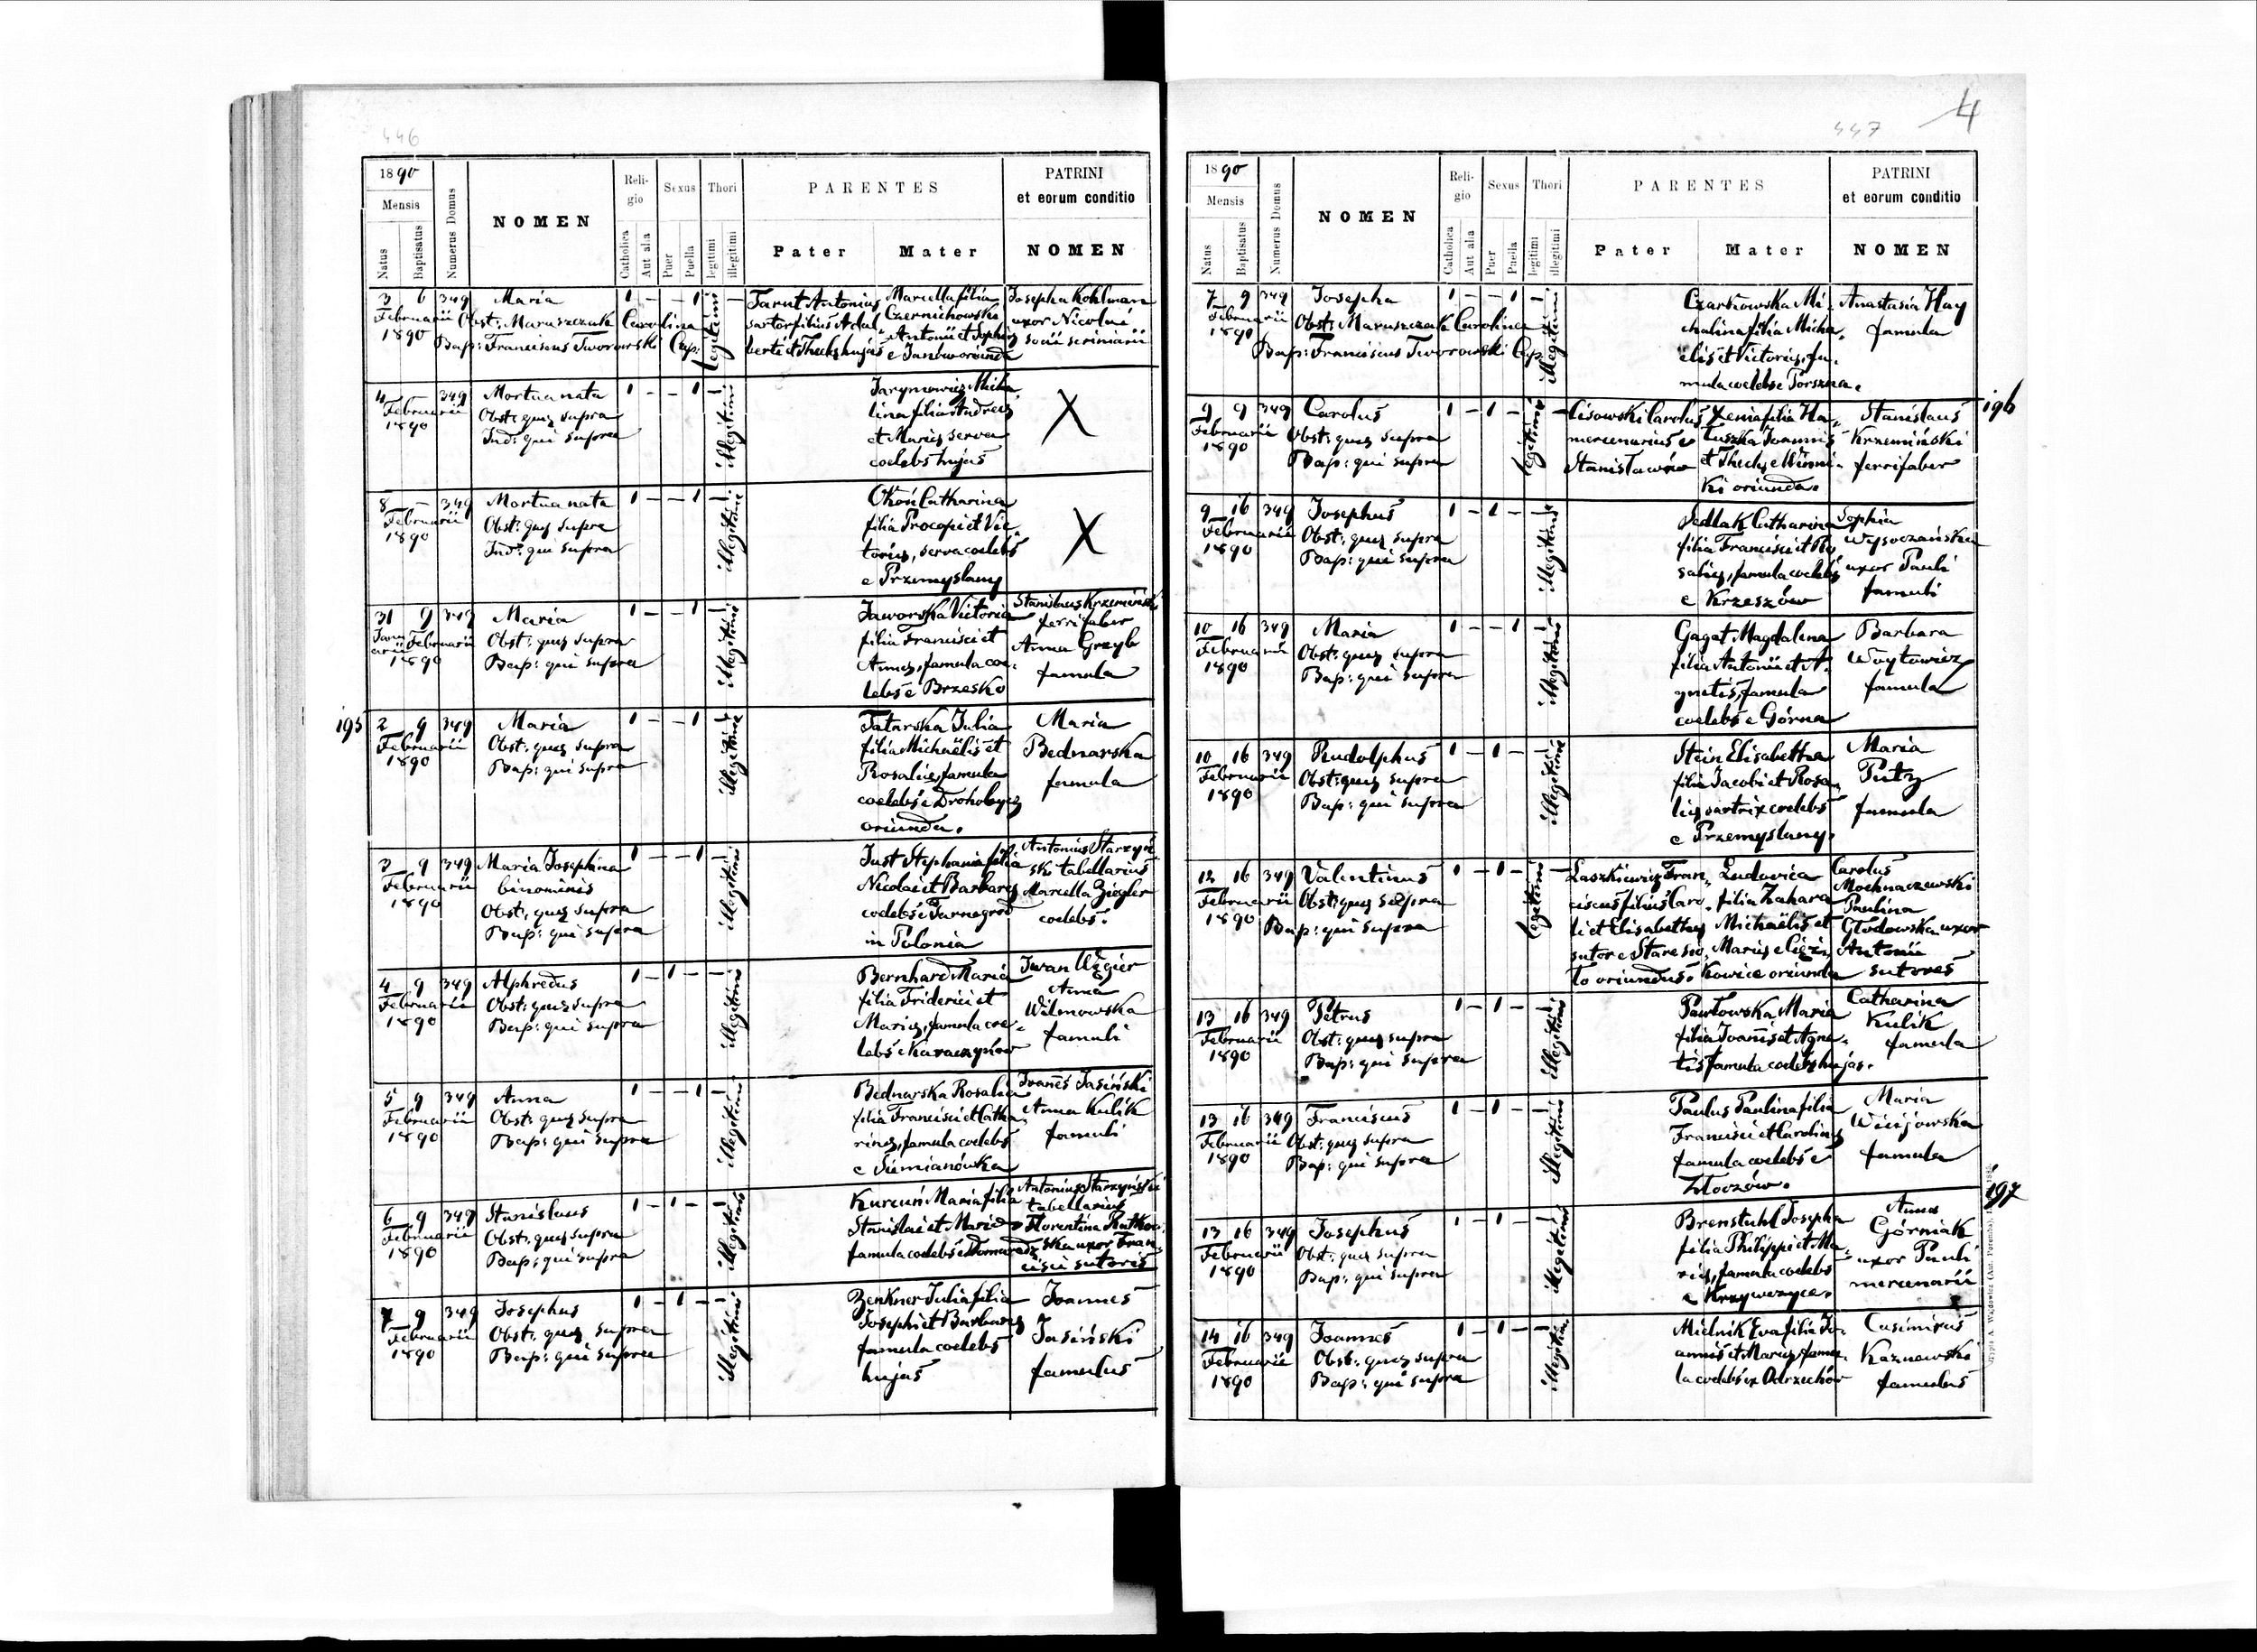 446
1890
Mensis
Natus
Baptisatus
Numerus Domus
NOMEN
Religio
Catholica
Aut alia
Sexus
Puer
Puella
Thori
legitimi
illegitimi
PARENTES
Pater
Mater
PATRINI
et eorum conditio
NOMEN
3 6 349
Februarii
1890
Maria
Obst: Maruszczak Carolina
Bap: Franciscus Tworowski Cap:
1 – – 1
legitimi
Tarnt Antonius
sartor filius Adal-
berti et Theclę hujas
Marcella filia
Czernichowski
Antonii et Sophię
e Janów oriunda
Josepha Kohlman
uxor Nicolai
socii scriniarii
4 – 349
Februarii
1890
Mortua nata
Obst: quę supra
Ind: qui supra
1 – – 1
illegitimi
Jarymowicz Micha-
lina filia Andreę
et Marię serva
coelebs hujas
X
8 – 349
Februarii
1890
Mortua nata
Obst: quę supra
Ind: qui supra
1 – – 1
illegitimi
Okoń Catharina
filia Procopi et Vic-
torię, serva coelebs
e Przemyslany
X
31 9 349
Januarii Februarii
1890
Maria
Obst: quę supra
Bap: qui supra
1 – – 1
illegitimi
Jaworska Victoria
filia Francisci et
Annę, famula coe-
lebs e Brzesko
Stanislaus Krzemiński
ferrifaber
Anna Grzyb
famula
195
2 9 349
Februarii
1890
Maria
Obst: quę supra
Bap: qui supra
1 – – 1
illegitimi
Tatarska Julia
filia Michaëlis et
Rosalię, famula
coelebs e Drohobycz
oriunda.
Maria
Bednarska
famula
3 9 349
Februarii
1890
Maria Josephina
binominis
Obst: quę supra
Bap: qui supra
1 – – 1
illegitimi
Just Stephania filia
Nicolai et Barbarę
coelebs e Tarnogrod
in Polonia
Antonius Starzyń-
ski tabellarius
Marcella Ziegler
coelebs.
4 9 349
Februarii
1890
Alphredus
Obst: quę supra
Bap: qui supra
1 – 1 –
illegitimi
Bernhard Maria
filia Friderici et
Marię, famula coe-
lebs e Karaczynów
Iwan Węgier
Anna
Wilmowska
famuli
5 9 349
Februarii
1890
Anna
Obst: quę supra
Bap: qui supra
1 – – 1
illegitimi
Bednarska Rosalia
filia Francisci et Catha-
rinę, famula coelebs
e Siemianówka
Joannes Jasiński
Anna Kulik
famuli
6 9 349
Februarii
1890
Stanislaus
Obst: quę supra
Bap: qui supra
1 – 1 –
illegitimi
Kurcuń Maria filia
Stanislai et Marię
famula coelebs e Domaradz
Antonius Starzyński
tabellarius
Florentina Rutkow-
ska uxor Fran-
cisci sutoris
7 9 349
Februarii
1890
Josephus
Obst: quę supra
Bap: qui supra
1 – 1 –
illegitimi
Zenkner Julia filia
Josephi et Barbarę
famula coelebs
hujas
Joannes
Jasiński
famulus
447
4
1890
Mensis
Natus
Baptisatus
Numerus Domus
NOMEN
Religio
Catholica
Aut alia
Sexus
Puer
Puella
Thori
legitimi
illegitimi
PARENTES
Pater
Mater
PATRINI
et eorum conditio
NOMEN
7 9 349
Februarii
1890
Josepha
Obst: Maruszczak Carolina
Bap: Franciscus Tworowski Cap.
1 – – 1
illegitimi
Czarkowska Mi-
chalina filia Micha-
ëlis et Victorię, fa-
mula coelebs e Torszna.
Anastasia Hay
famula
9 9 349
Februarii
1890
Carolus
Obst: quę supra
Bap: qui supra
1 – 1 –
legitimi
Lisowski Carolus
mercenarius e
Stanisławów
Xenia filia Ha-
luszka Joannis
et Theclę e Winni-
ki oriunda.
Stanislaus
Krzemiński
ferrifaber
196
9 16 349
Februarii
1890
Josephus
Obst: quę supra
Bap: qui supra
1 – 1 –
illegitimi
Sedlak Catharina
filia Francisci et Ro-
salię, famula coelebs
e Krzeszów
Sophia
Wysoczańska
uxor Pauli
famuli
10 16 349
Februarii
1890
Maria
Obst: quę supra
Bap: qui supra
1 – – 1
illegitimi
Gagat Magdalena
filia Antonii et A-
gnetis, famula
coelebs e Górna
Barbara
Woytowicz
famula
10 16 349
Februarii
1890
Rudolphus
Obst: quę supra
Bap: qui supra
1 – 1 –
illegitimi
Stein Elisabetha
filia Jacobi et Rosa-
lię sartrix coelebs
e Przemyslany.
Maria
Putz
famula
12 16 349
Februarii
1890
Valentinus
Obst: quę supra
Bap: qui supra
1 – 1 –
legitimi
Laszkiewicz Fran-
ciscus filius Caro-
li et Elisabethę
sutor e Stare sio-
ło oriundus.
Ludovica
filia Zahara
Michaëlis et
Marię e
kowice oriunda
Carolus
Mochnaczewski
Paulina
Głodowska uxor
Antonii
sutores
13 16 349
Februarii
1890
Petrus
Obst: quę supra
Bap: qui supra
1 – 1 –
illegitimi
Pawłowska Maria
filia Joannis et Agne-
tis famula coelebs hujas.
Catharina
Kulik
famula
13 16 349
Februarii
1890
Franciscus
Obst: quę supra
Bap: qui supra
1 – 1 –
illegitimi
Paulus Paulina filia
Francisci et Carolinę
famula coelebs e
Złoczów.
Maria
Wiijowska
famula
197
13 16 349
Februarii
1890
Josephus
Obst: quę supra
Bap: qui supra
1 – 1 –
illegitimi
Brenstuhl Josepha
filia Philippi et Ma-
rię, famula coelebs
e Krzywczyce.
Anna
Górniak
uxor Pauli
mercenarii
14 16 349
Februarii
1890
Joannes
Obst: quę supra
Bap: qui supra
1 – 1 –
illegitimi
Mielnik Eva filia Jo-
annis et Marię, famu-
la coelebs ex Odrzechów
Casimirus
Kaznowski
famulus